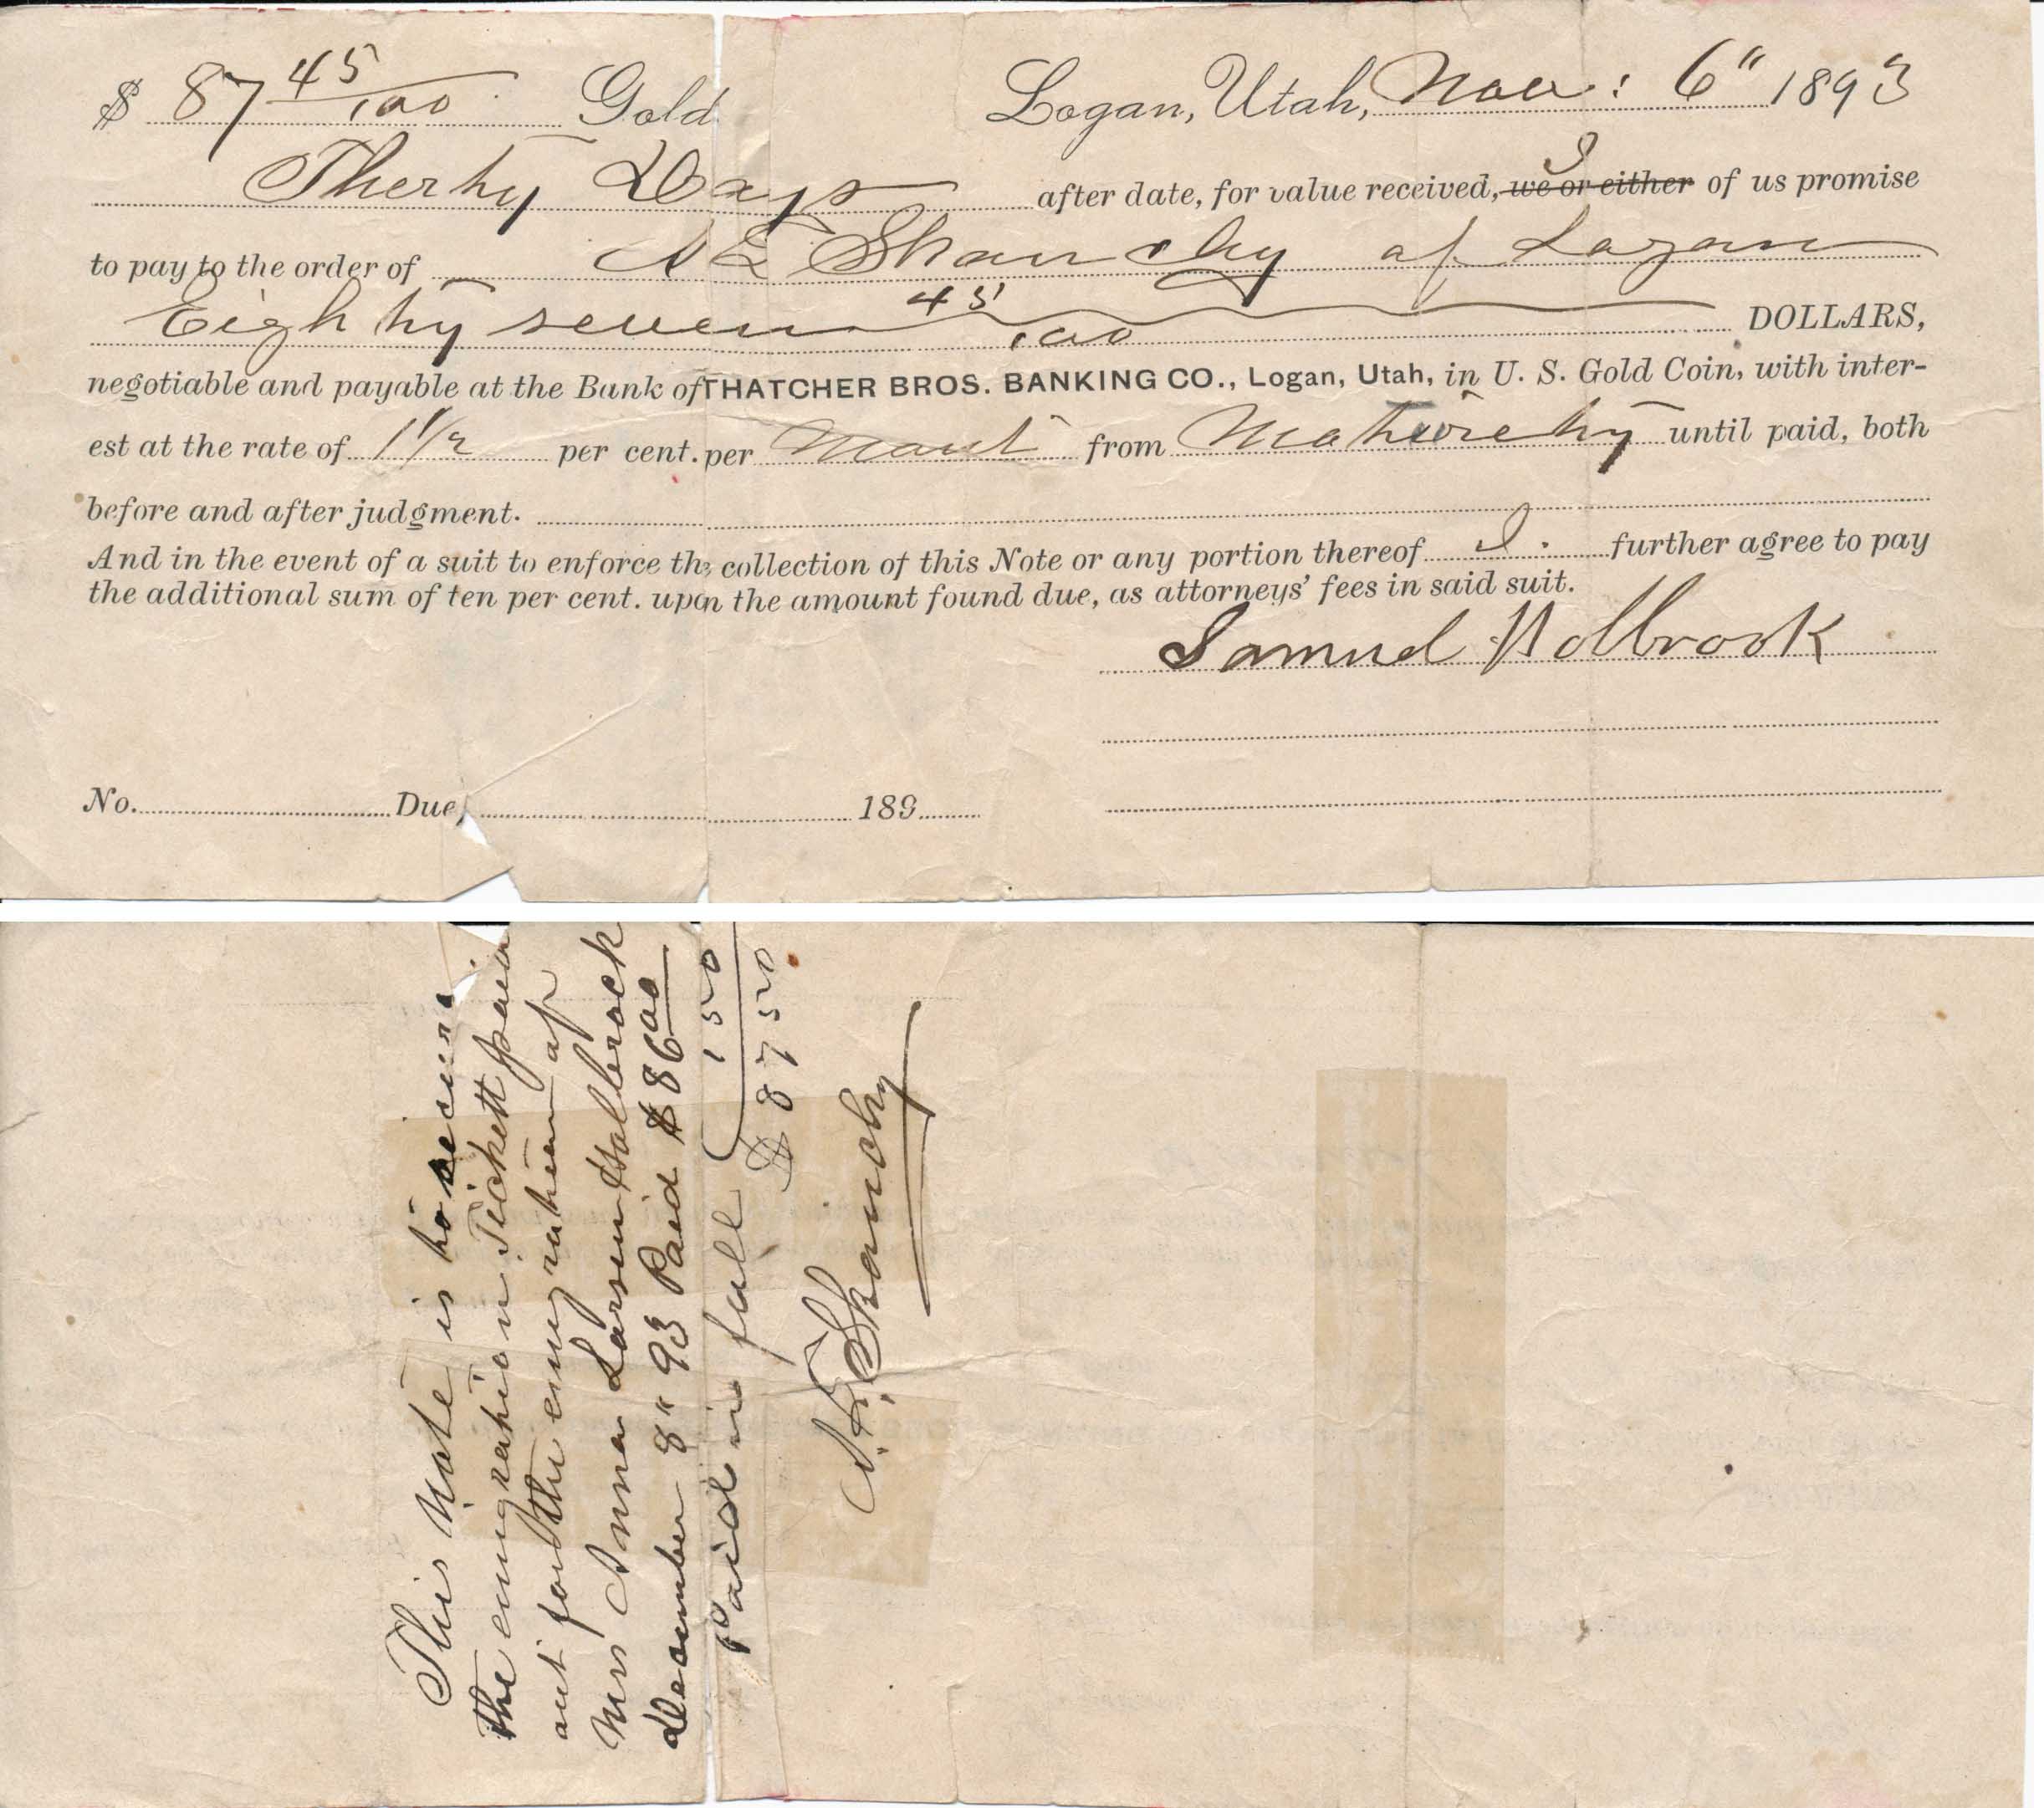 $ 87 45/100 Gold Logan, Utah, Nov: 6" 1893
Therty Days after date, for value received, ~~we or either~~ I of us promise
to pay to the order of N E Skanchy of Logan
Eighty seven 45/100 DOLLARS,
negotiable and payable at the Bank of THATCHER BROS. BANKING CO., Logan, Utah, in U. S. Gold Coin, with inter-
est at the rate of 1 1/2 per cent. per Mont from Maturety until paid, both
before and after judgment.
And in the event of a suit to enforce the collection of this Note or any portion thereof I. further agree to pay
the additional sum of ten per cent. upon the amount found due, as attorneys' fees in said suit.
Samuel Holbrook
No. Due, 189
This Note is to secure
the emigration Tickett paid
out for the emigration of
Mrs Anna Larsen Hallbrock
December 8" 93 Paid $ 86 00
1 50
Paid in full $ 87 50
A. L. Skanchy